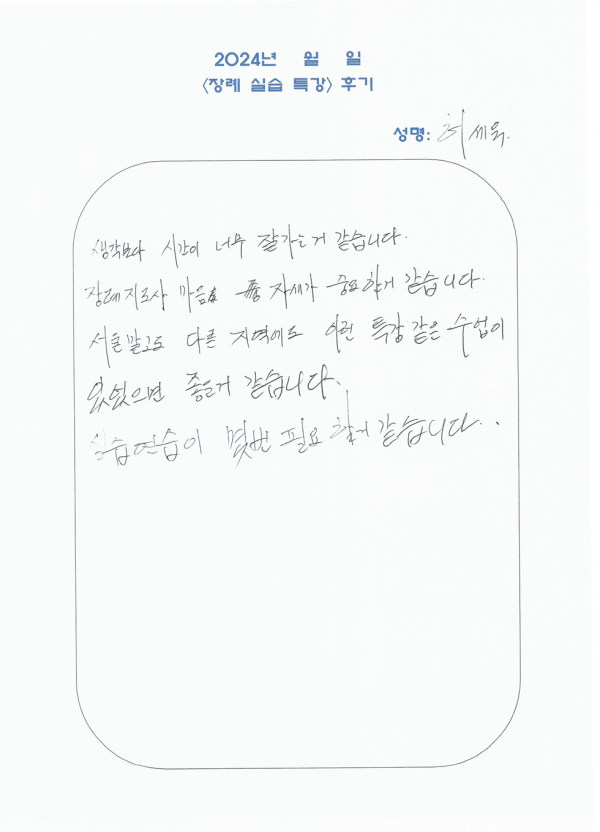 2024년 월 일
<장례 실습 특강> 후기
성명: 허세욱.
생각보다 시간이 너무 잘가는거 같습니다.
장례지도사 마음 자세가 중요한거 같습니다.
서울말고도 다른 지역에도 이런 특강 같은 수업이
있었으면 좋을거 같습니다.
실습연습이 몇번 필요할거 같습니다..